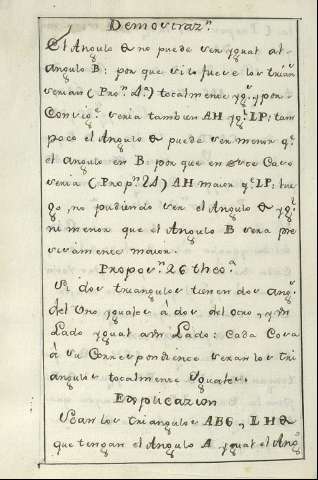 Demostraz.ⁿ
El Angulo E no puede ser ygual al
angulo B: por que si lo fuese los trian.ˢ
serian (Prop.ⁿ 4.ª) totalmente yg.ˢ y por
Conseq.ᵃ seria tambien AH yg.ˡ LP: tam
poco el Angulo E puede ser menor q.ᵉ
el angulo en B: por que en este Caso
seria (Prop.ⁿ 24) AH maior q.ᵉ LP: lue
go, no pudiendo ser el Angulo E yg.ˡ
ni menor que el Angulo B sera pre
cisamente maior.
Propos.ⁿ 26 theo.ᵃ
Si dos triangulos tienen dos ang.ˢ
del Uno yguales à dos del otro, y un
Lado ygual a un Lado: Cada Cosa
à su Correspondiente seran los tri
angulos totalmente Yguales.
Explicazion
Sean los triangulos ABG, LHE
que tengan el Angulo A ygual el Ang.ᵒ